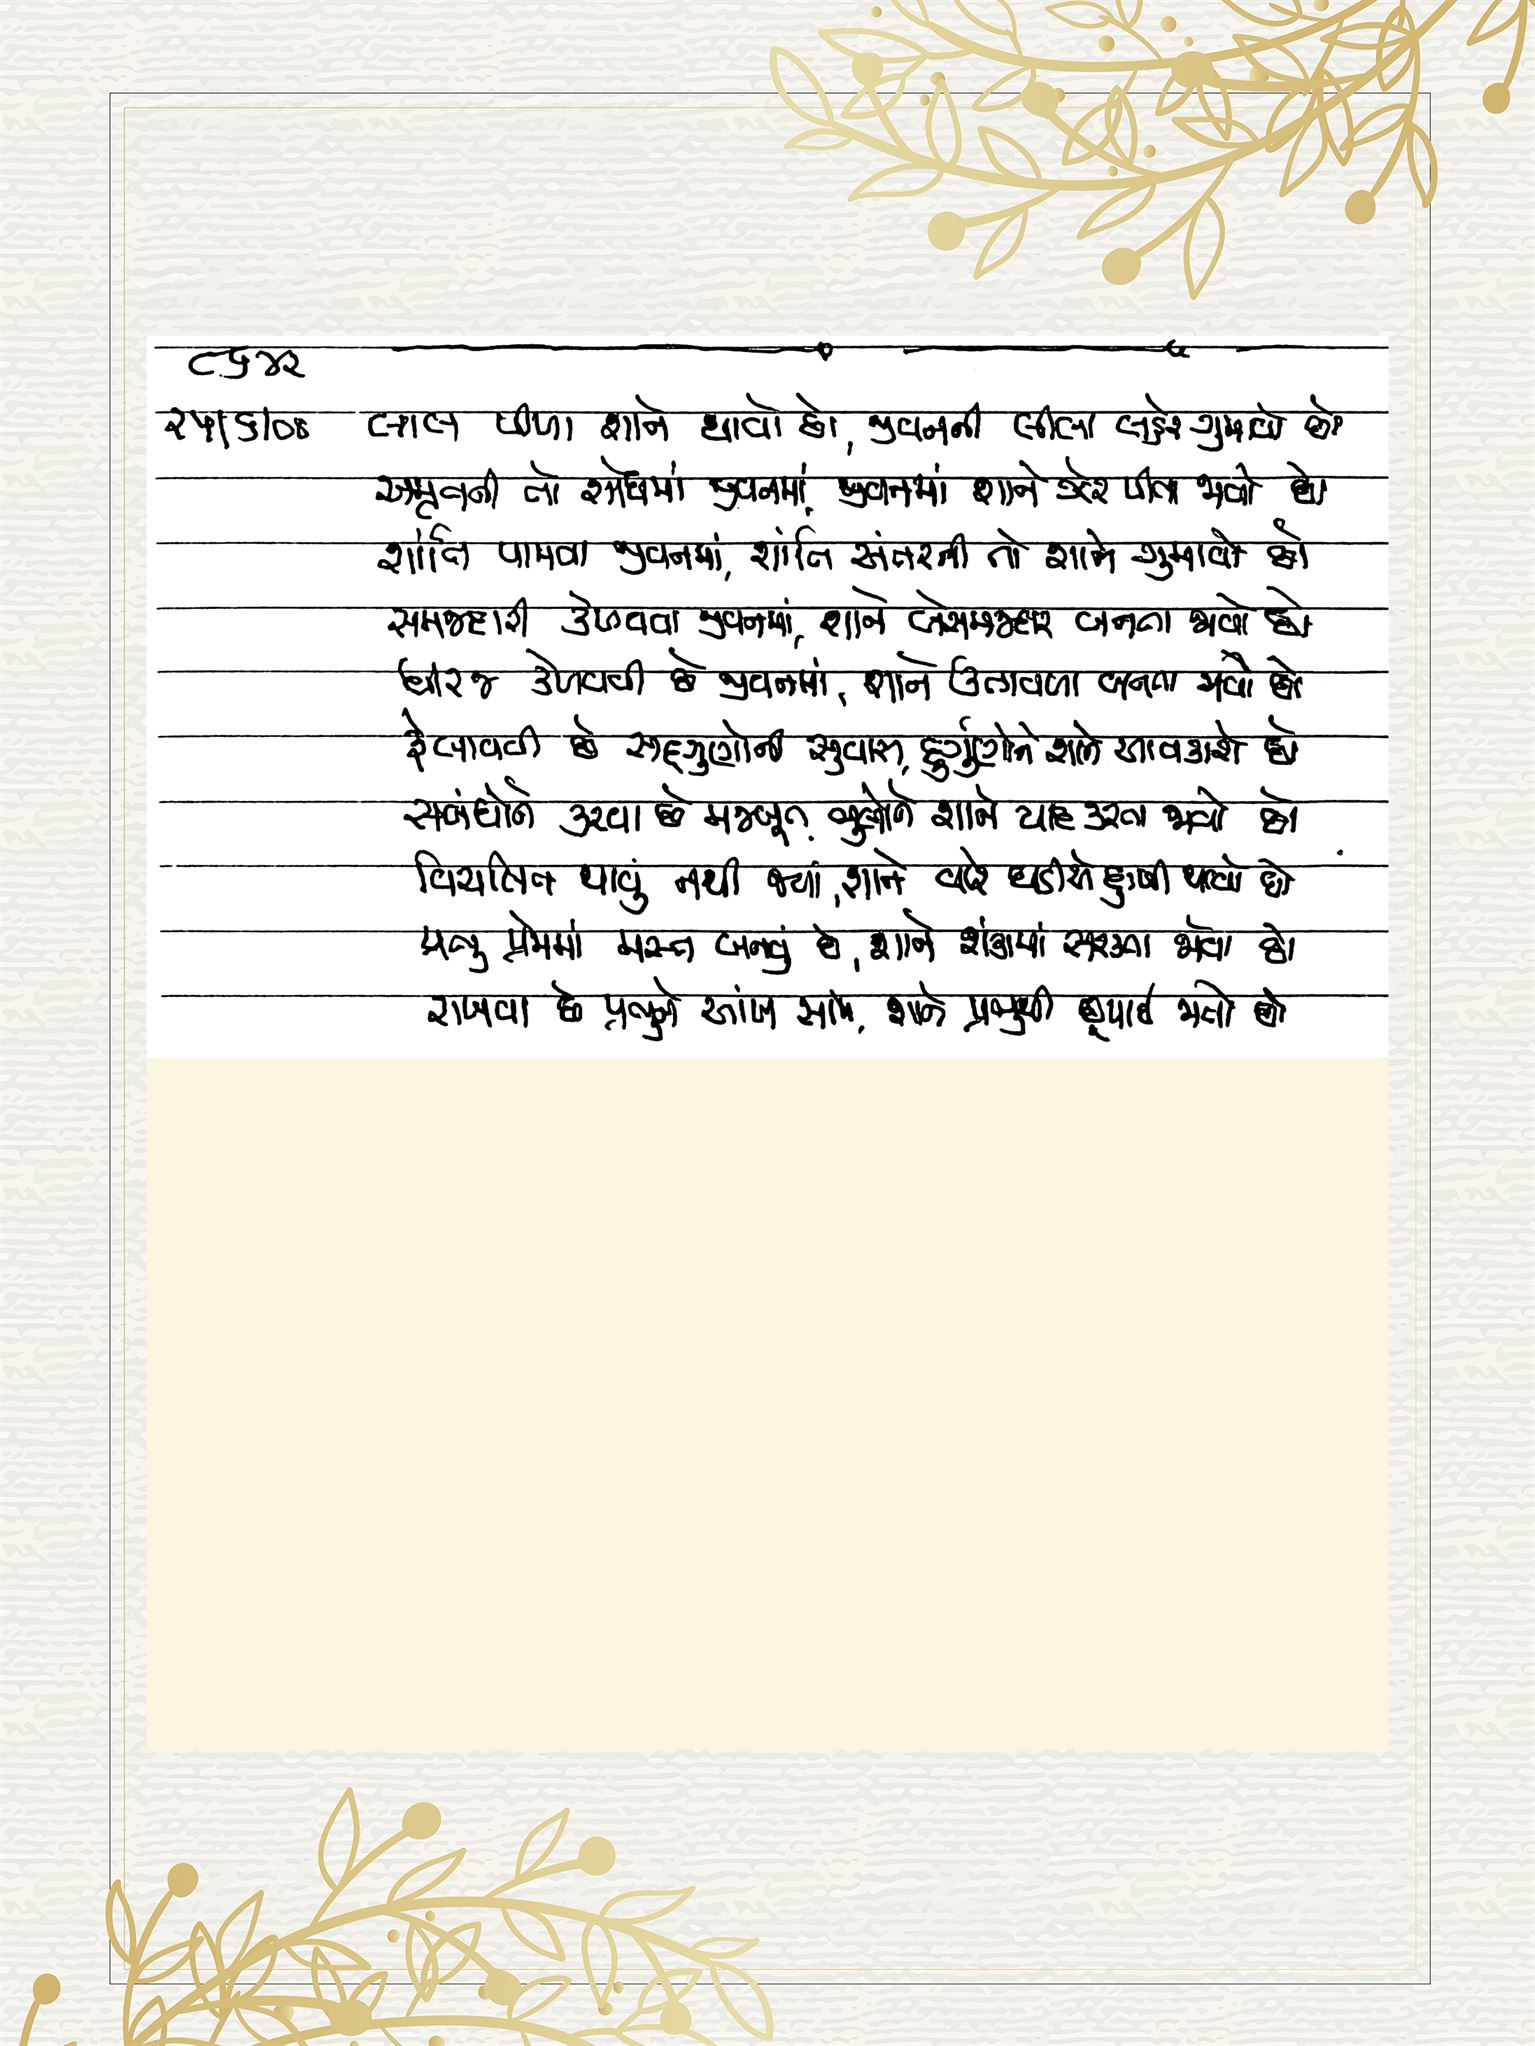 ૮૬૪૨
૨૫/૬/૦૪ લાલ પીળા શાને થાવો છો, જીવનની લીલા લહેર ગુમાવો છો
અમૃતની તો શોધમાં જીવનમાં, જીવનમાં શાને ઝેર પીતા જાવો છો
શાંતિ પામવા જીવનમાં, શાંતિ અંતરની તો શાને ગુમાવો છો
સમજદારી કેળવવા જીવનમાં, શાને બેસમજદાર બનતા જાવો છો
ધીરજ કેળવવી છે જીવનમાં, શાને ઉતાવળા બનતા જાવો છો
ફેલાવવી છે સદ્ગુણોની સુવાસ, દુર્ગુણોને શાને આવકારો છો
સબંધોને કરવા છે મજબૂત, ભુલોને શાને યાદ કરતા જાવો છો
વિચલિત થાવું નથી જ્યાં, શાને વારે ઘડીએ દુઃખી થાવો છો
પ્રભુ પ્રેમમાં મસ્ત બનવું છે, શાને શંકામાં સરકતા જાવો છો
રાખવા છે પ્રભુને આંખ સામે, શાને પ્રભુથી છૂપાઈ જાવો છો